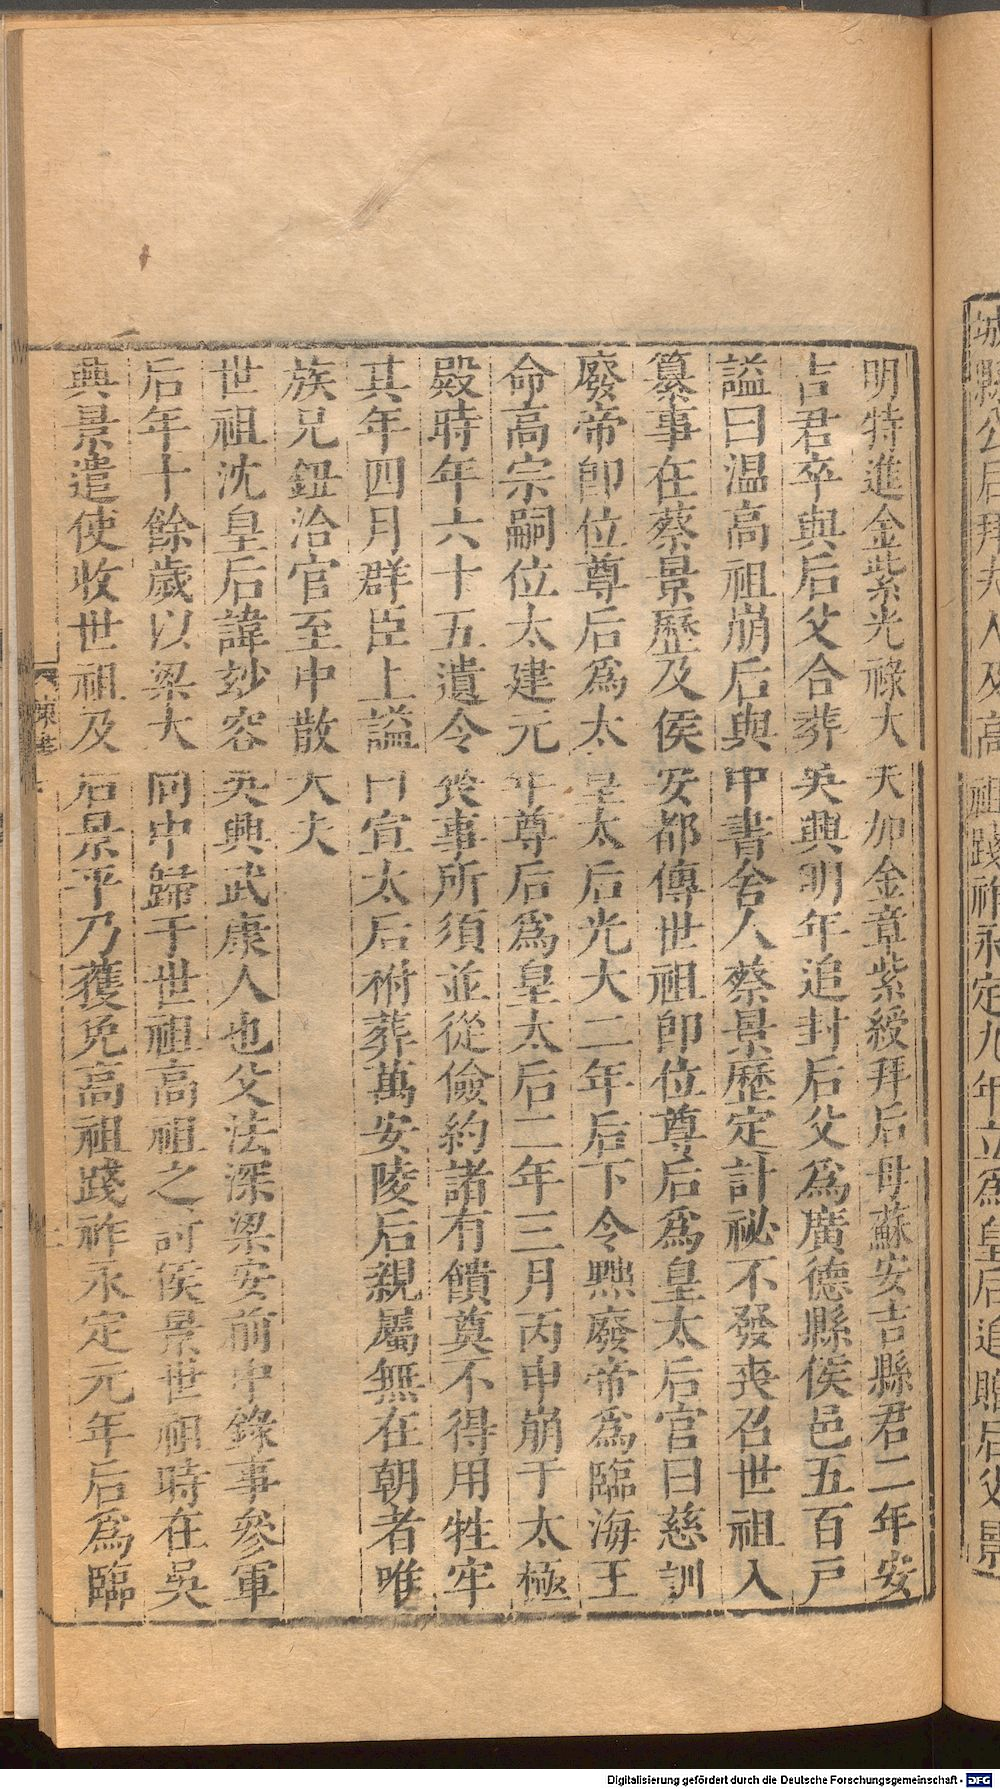 城縣公后拜夫人及高祖踐祚永定元年立為皇后追贈后父景
明特進金紫光祿大夫加金章紫綬拜后母蘇安吉縣君二年安
吉君卒與后父合葬吳興明年追封后父為廣德縣侯邑五百戶
謚曰温高祖崩后與中書舍人蔡景歷定計祕不發丧召世祖入
纂事在蔡景歷及侯安都傳世祖即位尊后為皇太后宫曰慈訓
廢帝即位尊后為太皇太后光大二年后下令黜廢帝為臨海王
命高宗嗣位太建元年尊后為皇太后二年三月丙申崩于太極
殿時年六十五遺令喪事所須並從儉約諸有饋奠不得用牲牢
其年四月群臣上謚曰宣太后祔葬萬安陵后親屬無在朝者唯
族兄鈕洽官至中散大夫
世祖沈皇后諱妙容吳興武康人也父法深梁安前中錄事參軍
后年十餘歲以梁大同中歸于世祖高祖之討侯景世祖時在吳
興景遣使收世祖及后景平乃獲免高祖踐祚永定元年后為臨
Digitalisierung gefördert durch die Deutsche Forschungsgemeinschaft - DFG